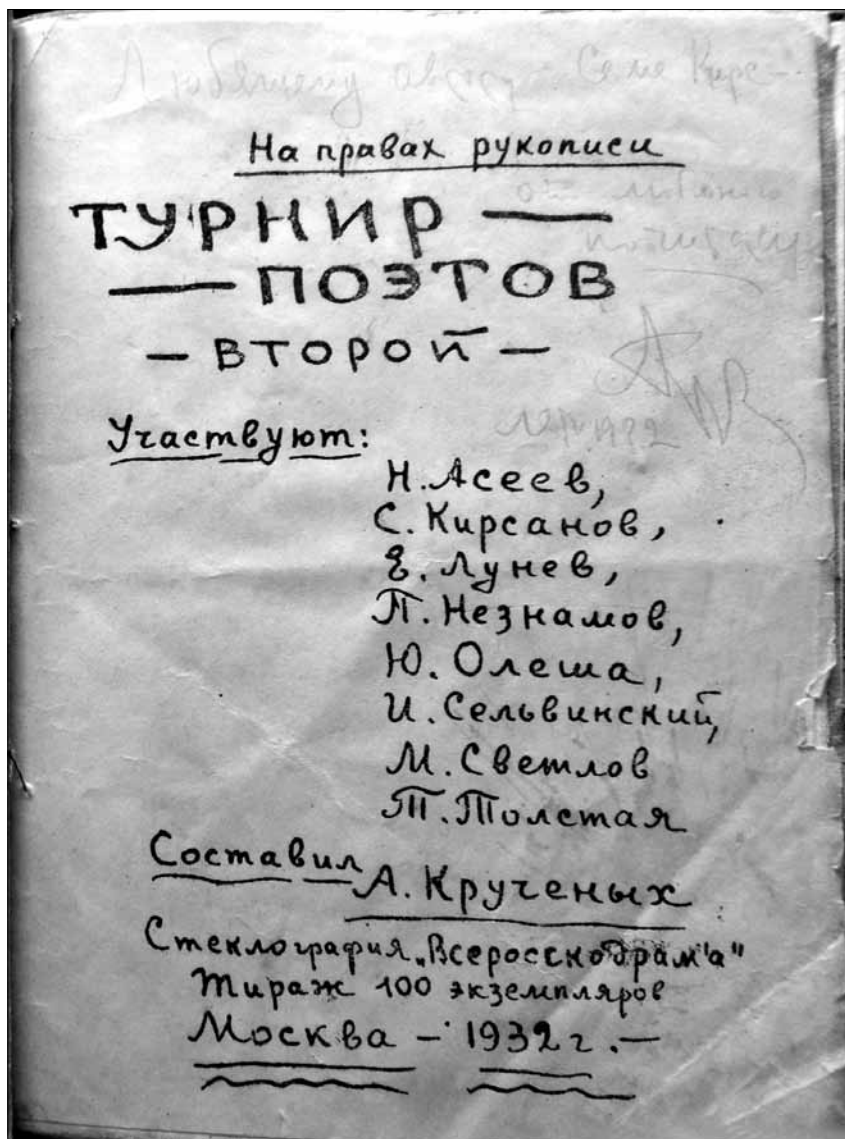 На правах рукописи
ТУРНИР —
— ПОЭТОВ
— ВТОРОЙ —
Участвуют:
Н. Асеев,
С. Кирсанов,
Е. Лунев,
П. Незнамов,
Ю. Олеша,
И. Сельвинский,
М. Светлов
Т. Толстая
Составил
А. Крученых
Стеклография „Всеросскодрам'а"
Тираж 100 экземпляров
Москва – 1932 г. —